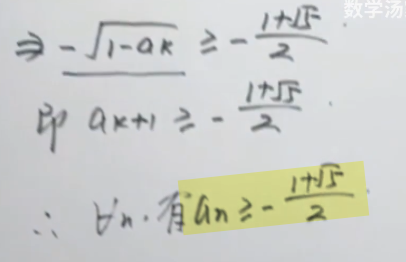 数学汤
⇒ -√(1-ak) ≥ -(1+√5)/2.
即 ak+1 ≥ -(1+√5)/2.
∴ ∀n. 有 an ≥ -(1+√5)/2.